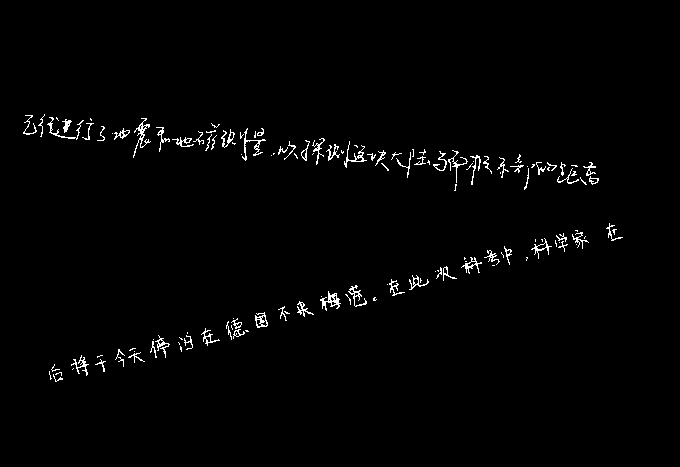 还进行了地震和地磁测量,以探测这块大陆与南极东部的距离
后将于今天停泊在德国不来梅港。在此次科考中,科学家在